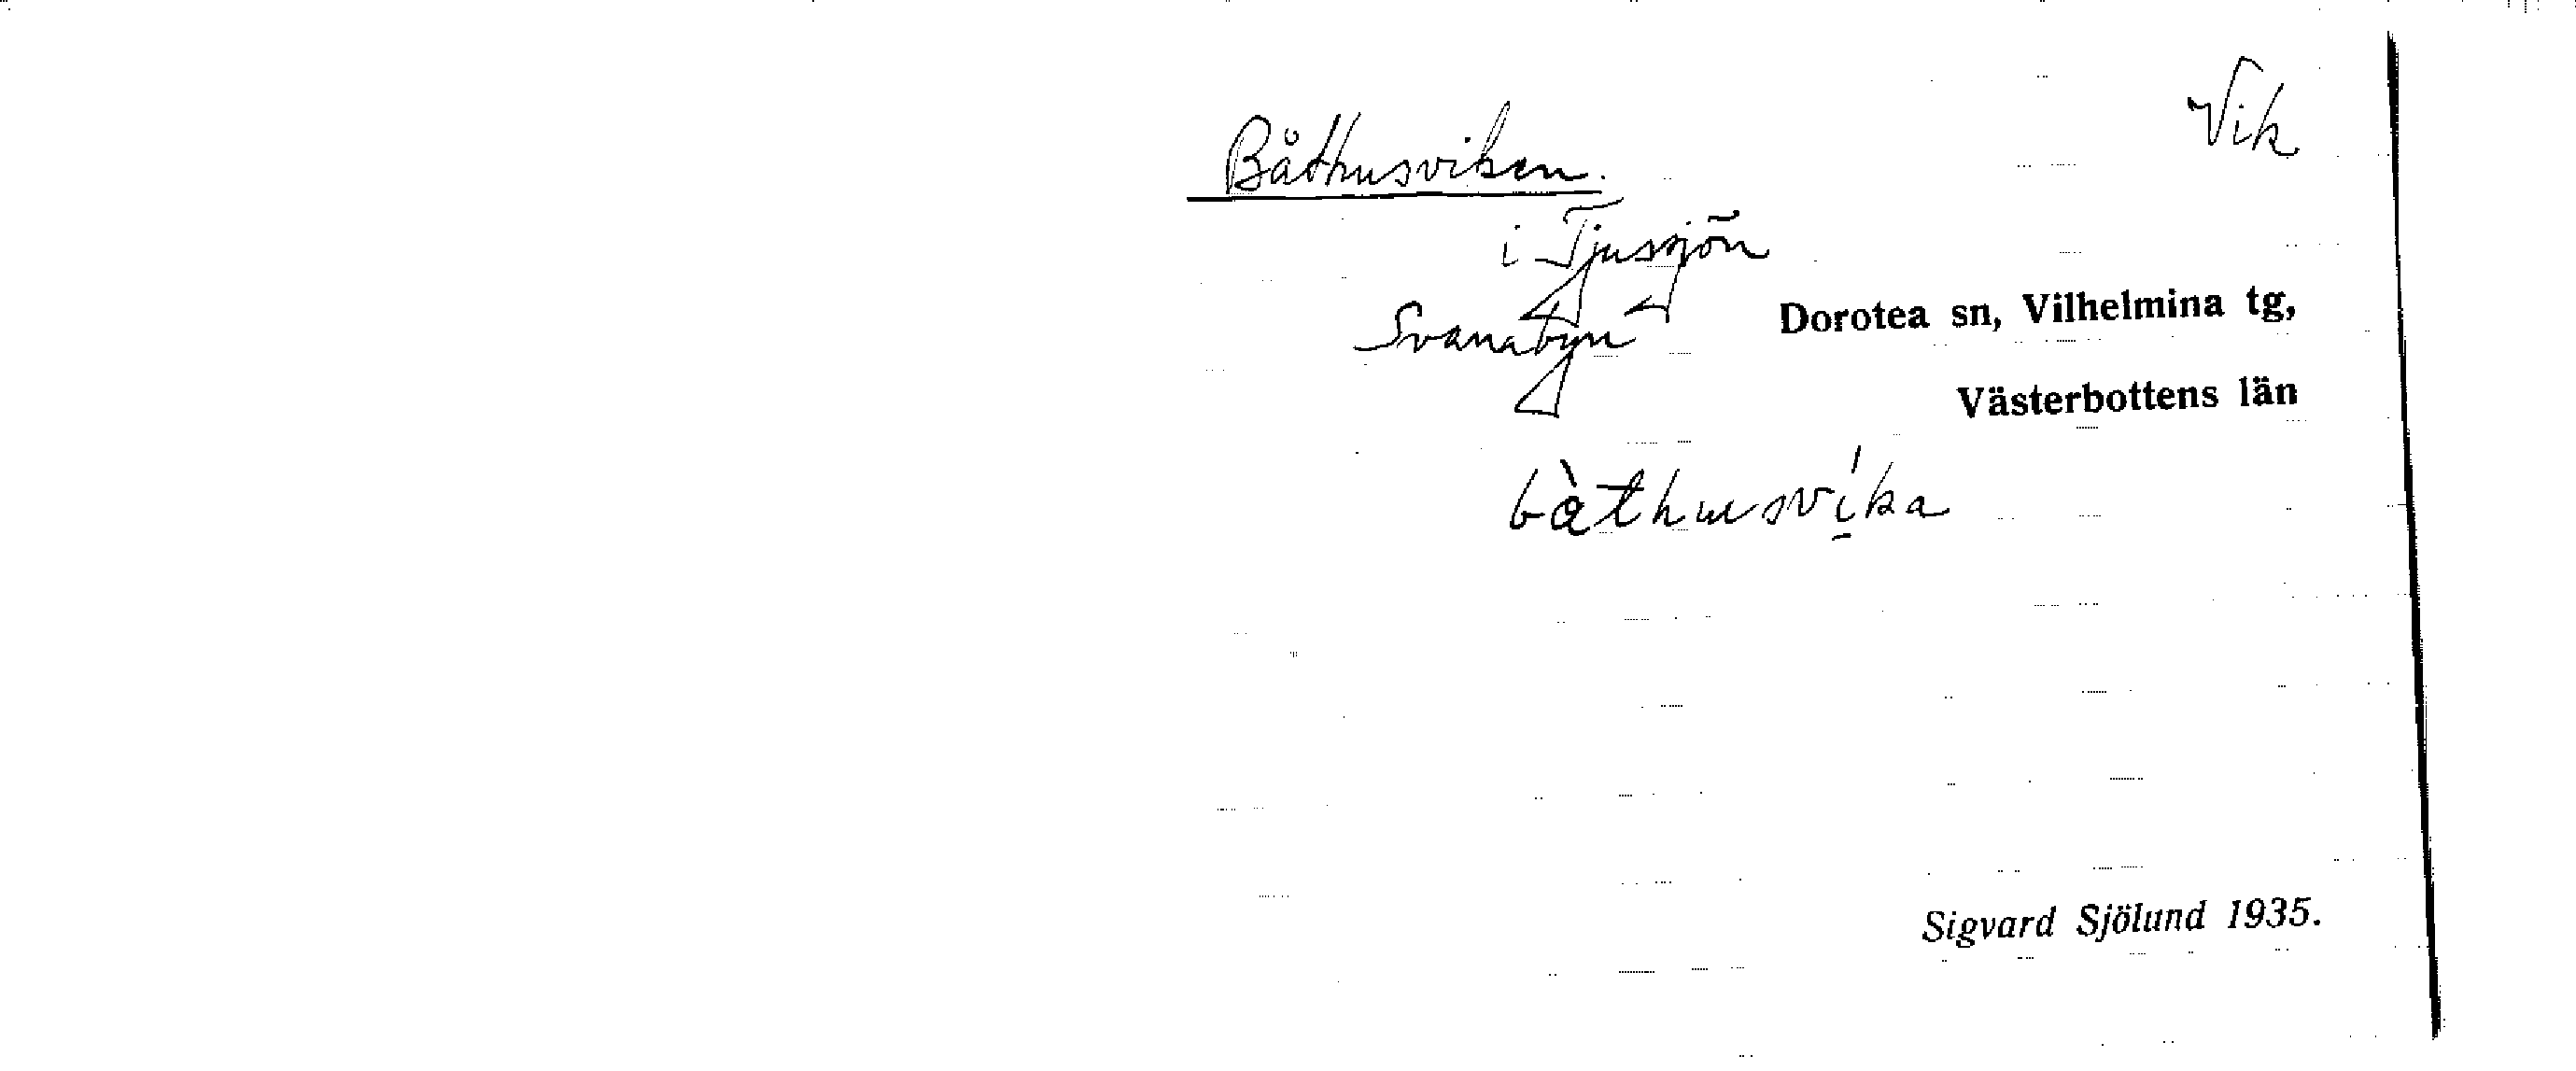 Vik
Båthusviken.
i Tjusjön
Svanabyn Dorotea sn, Vilhelmina tg,
Västerbottens län
bàthusví̱ka
Sigvard Sjölund 1935.